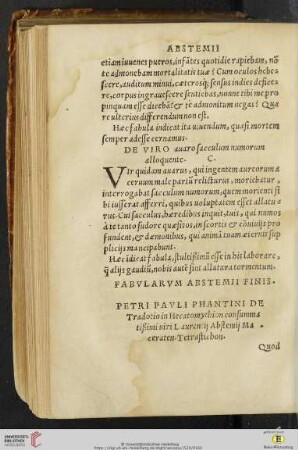 ABSTEMII
etiam iuuenes pueros, infãtes quotidie rapiebam, nõ
te admonebam mortalitatis tuæ? Cum oculos hebe
scere, auditum minui, cæterosq; sensus indies defice
re, corpus ingrauescere sentiebas, nonne tibi me pro
pinquam esse dicebã? & te admonitum negas? Qua
re ulterius differendum non est.
Hæc fabula indicat ita uiuendum, quasi mortem
semper adesse cernamus.
DE VIRO auaro sacculum numorum
alloquente. C.
VIr quidam auarus, qui ingentem aureorum a
ceruum male pariũ reliturus, moriebatur,
interrogabat sacculum numorum, quem morienti si
bi iusserat afferri, quibus uoluptatem esset allatu
rus. Cui sacculus, hæredibus inquit, tuis, qui numos
à te tanto sudore quæsitos, in scortis & cõuiuijs pro
fundent, & dæmonibus, qui animã tuam æternis sup
plicijs mancipabunt.
Hæc idicat fabula, stultissimũ esse in his laborare,
q̃ alijs gaudiũ, nobis autẽ sint allatura tormentum.
FABVLARVM ABSTEMII FINIS.
PETRI PAVLI PHANTINI DE
Tradotio in Hecatomythion consumma
tissimi uiri Laurentij Abstemij Ma
ceraten. Tetrastichon.
Quod
UNIVERSITÄTS-
BIBLIOTHEK
HEIDELBERG
© Universitätsbibliothek Heidelberg